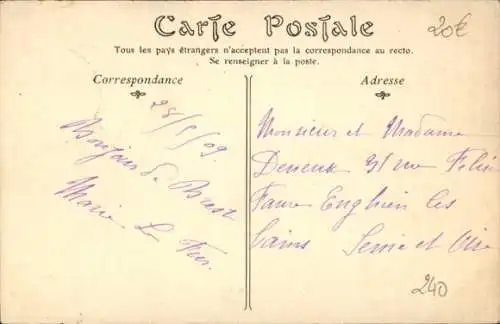 Carte Postale
20€
Tous les pays étrangers n'acceptent pas la correspondance au recto.
Se renseigner à la poste.
Correspondance
Adresse
28/5/09
Bonjour de Brest
Marie Le
Monsieur et Madame
31 rue Félix
Faure Enghien les
bains Seine et Oise
240